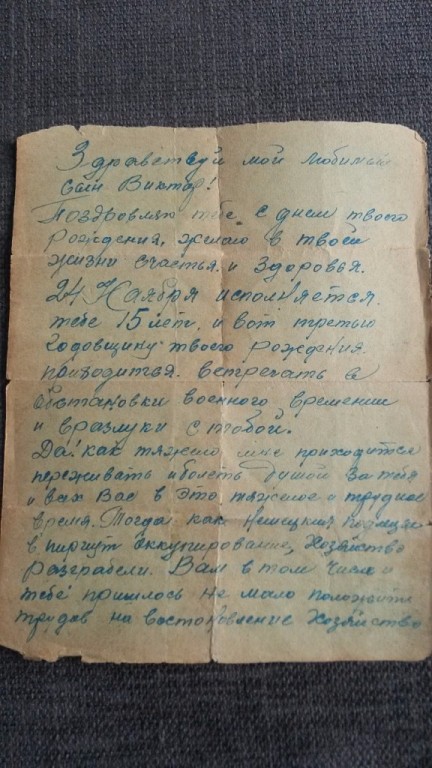 Здравствуй мой любимый
сын Виктор!
Поздровляю тебе с днем твоего
рождения, желаю в твоей
жизни счастья и здоровья.
24 Ноября исполняется
тебе 15 лет, и вот третью
годовщину твоего рождения
приводиться встречать в
обстановки военного времени
и вразлуки с тобой.
Да! как тяжело мне приходится
переживать и болеть душой за тебя
и всех Вас в это тяжелое и трудное
время. Тогда как Немецких
оккупирование, Хозяйство
разграбели. Вам в том числе и
тебе пришлось не мало положить
трудов на востоновление Хозяйство